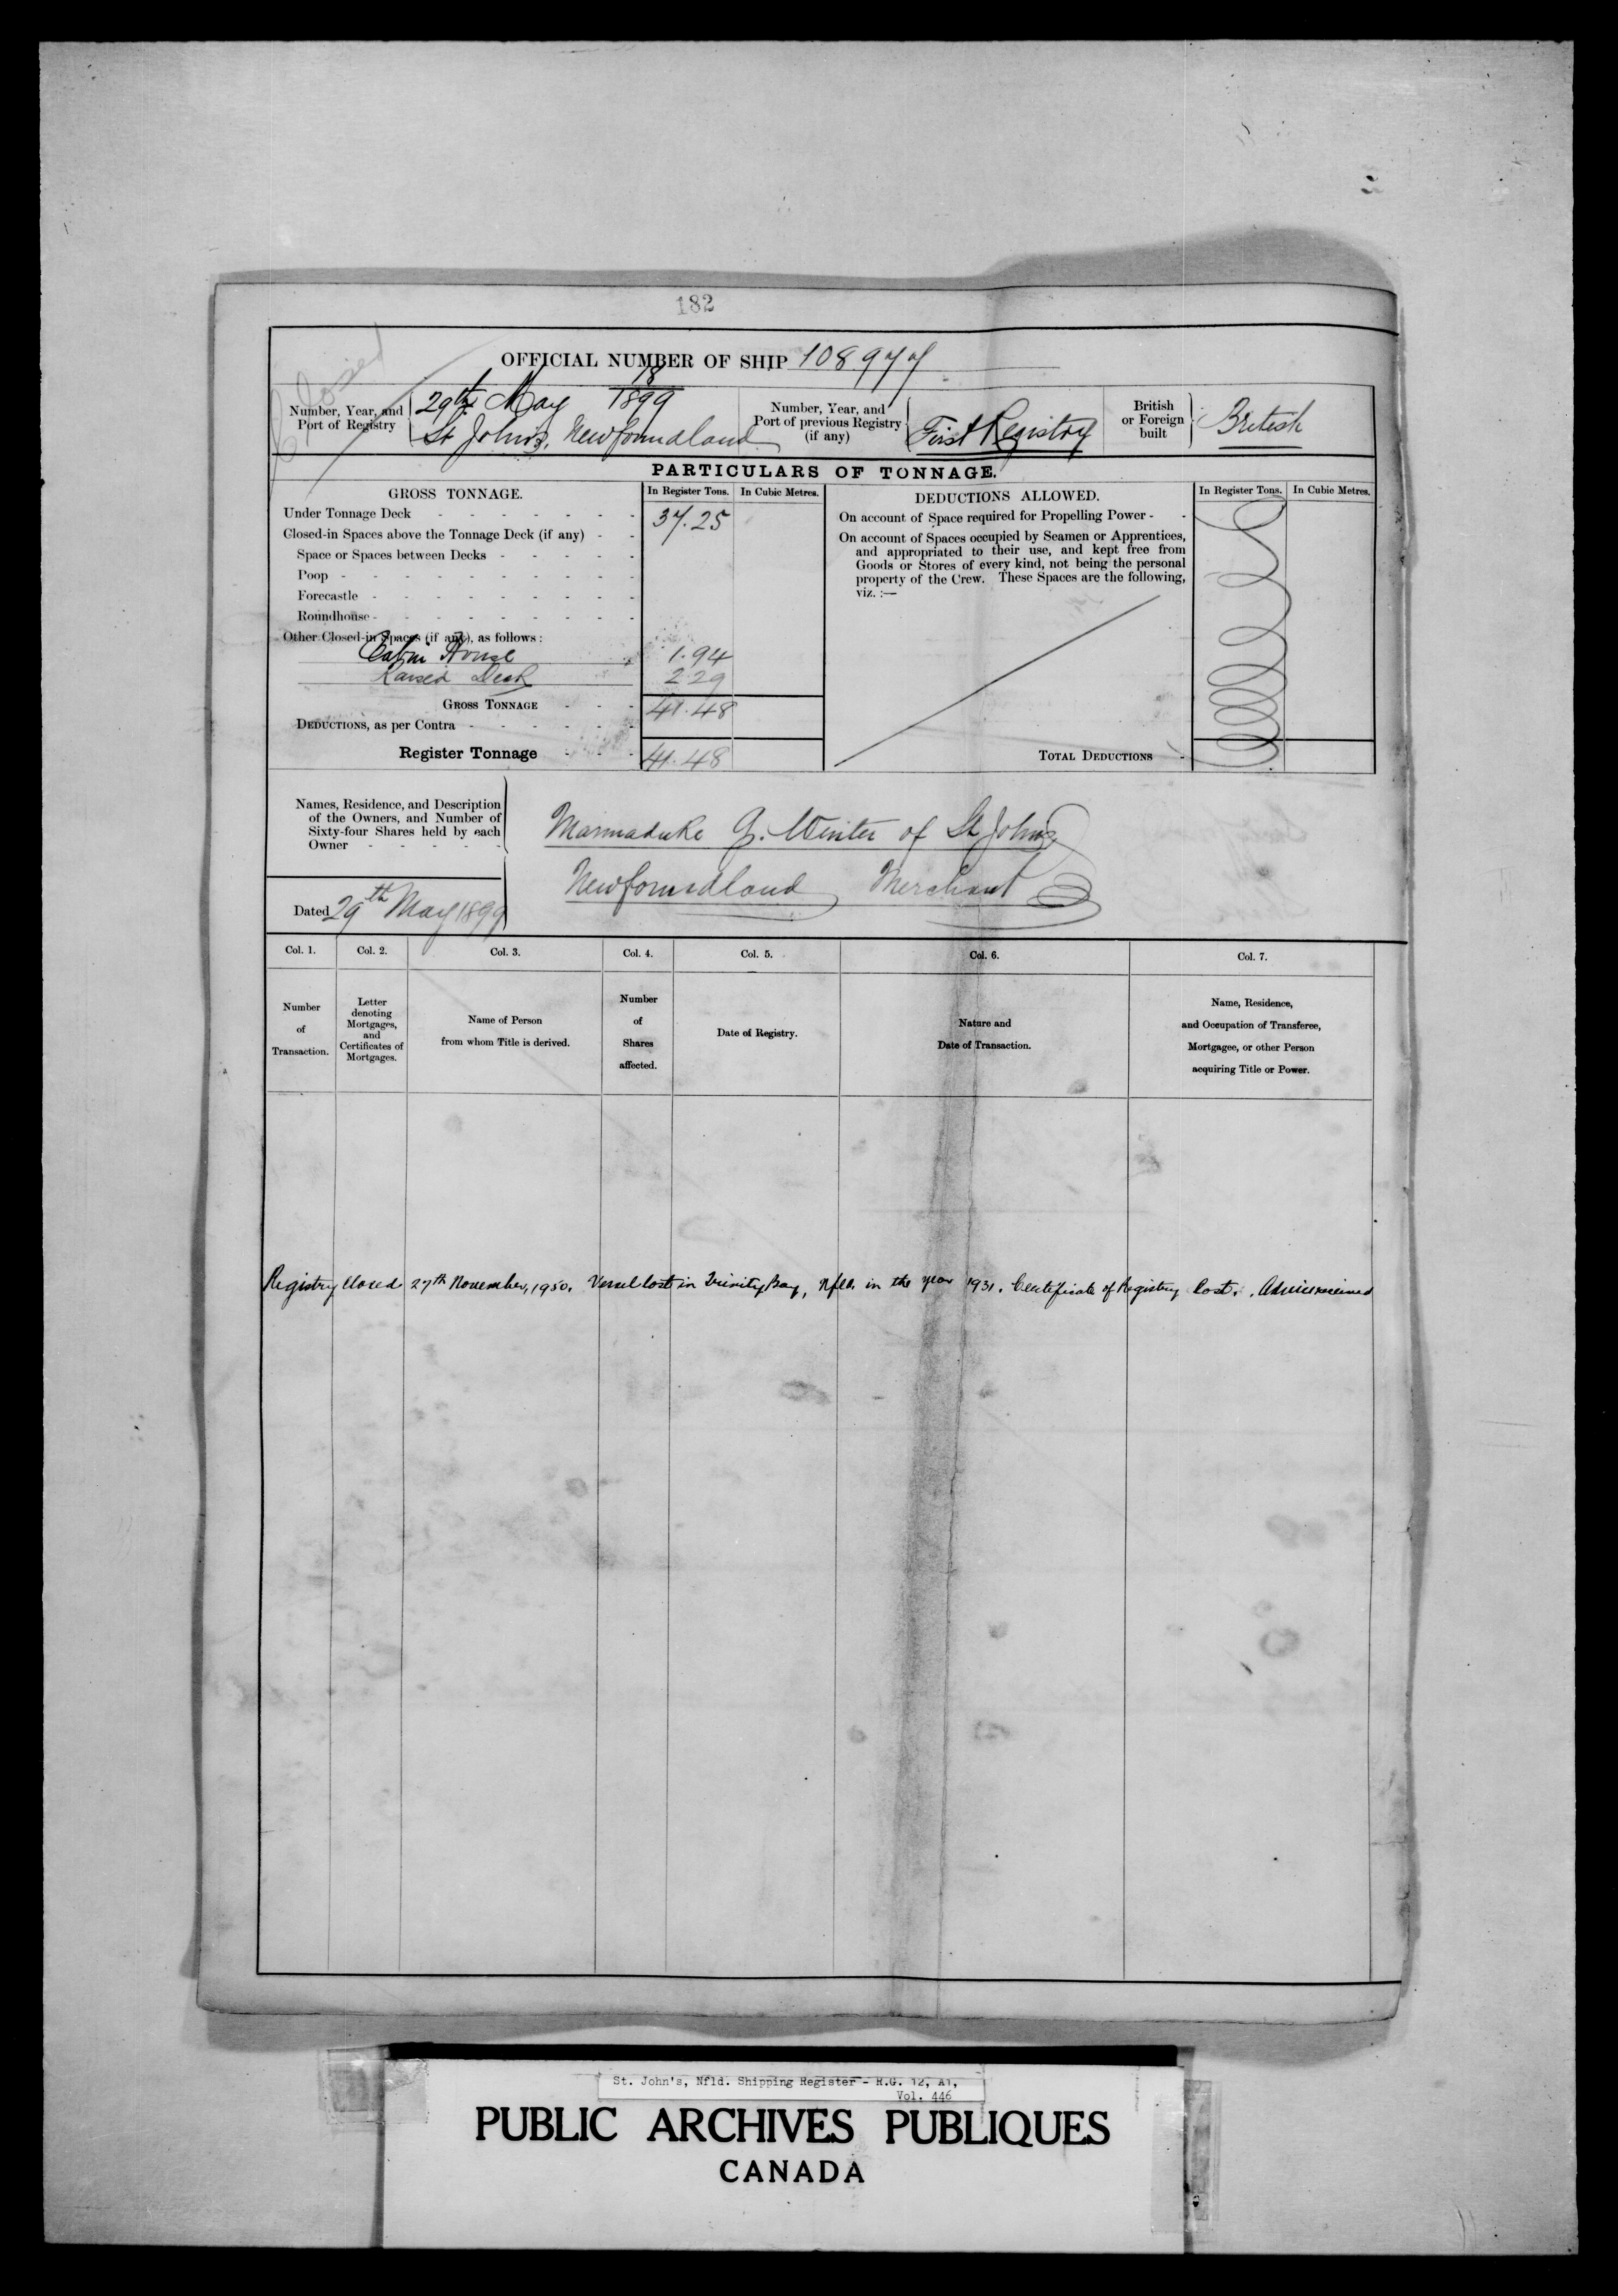 182
Closed
OFFICIAL NUMBER OF SHIP 108977
18
Number, Year, and Port of Registry
29th May 1899
St John's, Newfoundland
Number, Year, and Port of previous Registry (if any)
First Registry
British or Foreign built
British
PARTICULARS OF TONNAGE.
GROSS TONNAGE. In Register Tons. In Cubic Metres.
Under Tonnage Deck 37.25
Closed-in Spaces above the Tonnage Deck (if any)
Space or Spaces between Decks
Poop
Forecastle
Roundhouse
Other Closed-in Spaces (if any), as follows:
Cabin House 1.94
Raised Deck 2.29
GROSS TONNAGE 41.48
DEDUCTIONS, as per Contra
Register Tonnage 41.48
DEDUCTIONS ALLOWED. In Register Tons. In Cubic Metres.
On account of Space required for Propelling Power
On account of Spaces occupied by Seamen or Apprentices,
and appropriated to their use, and kept free from
Goods or Stores of every kind, not being the personal
property of the Crew. These Spaces are the following,
viz. :—
TOTAL DEDUCTIONS
Names, Residence, and Description
of the Owners, and Number of
Sixty-four Shares held by each
Owner
Marmaduke G. Winter of St John's
Newfoundland Merchant
Dated 29th May 1899
Col. 1. Col. 2. Col. 3. Col. 4. Col. 5. Col. 6. Col. 7.
Number
of
Transaction.
Letter
denoting
Mortgages,
and
Certificates of
Mortgages.
Name of Person
from whom Title is derived.
Number
of
Shares
affected.
Date of Registry.
Nature and
Date of Transaction.
Name, Residence,
and Occupation of Transferee,
Mortgagee, or other Person
acquiring Title or Power.
Registry Closed 27th November, 1950. Vessel lost in Trinity Bay, Nfld. in the year 1931. Certificate of Registry Lost. Advice received
St. John's, Nfld. Shipping Register - R.G. 12, A1,
Vol. 446
PUBLIC ARCHIVES PUBLIQUES
CANADA